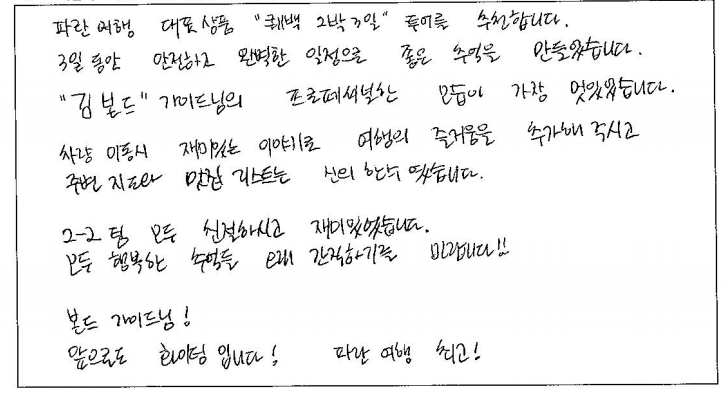 파란여행 대표상품 "퀘백 2박3일" 투어를 추천합니다.
3일동안 안전하고 완벽한 일정으로 좋은 추억을 만들었습니다.
"김본드" 가이드님의 프로페셔널한 모습이 가장 멋있었습니다.
차량 이동시 재미있는 이야기로 여행의 즐거움을 추가해 주시고
주변 지도와 맛집 리스트는 신의 한수 였습니다.
2-2 팀 모두 친절하시고 재미있었습니다.
모두 행복한 추억들 오래 간직하기를 바랍니다!!
본드 가이드님!
앞으로도 화이팅 입니다! 파란여행 최고!